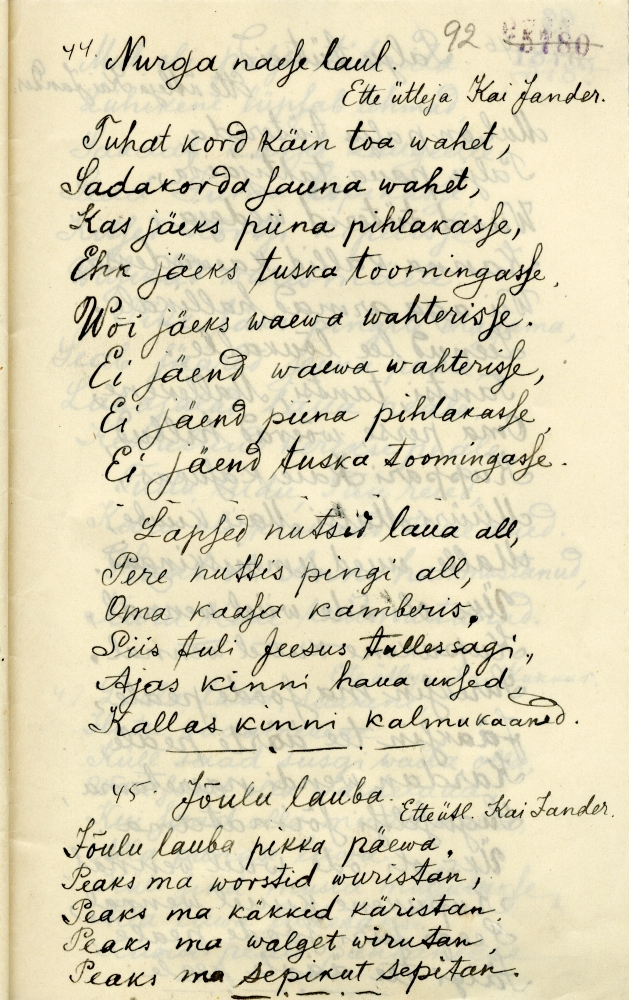 92
44. Nurga naese laul.
Ette ütleja Kai Jander.
Tuhat kord käin toa wahet,
Sadakorda sauna wahet,
Kas jäeks piina pihlakasse,
Ehk jäeks tuska toomingasse,
Wõi jäeks waewa wahterisse.
Ei jäend waewa wahterisse,
Ei jäend piina pihlakasse,
Ei jäend tuska toomingasse.
Lapsed nutsid laua all,
Pere nuttis pingi all,
Oma kaasa kamberis.
Siis tuli Jeesus tullessagi,
Ajas kinni haua uksed,
Kallas kinni kalmukaaned.
45. Jõulu lauba.
Ette ütl. Kai Jander.
Jõulu lauba pikka päewa,
Peaks ma worstid wuristan,
Peaks ma käkkid käristan,
Peaks ma walget wirutan,
Peaks ma sepikut sepitan.